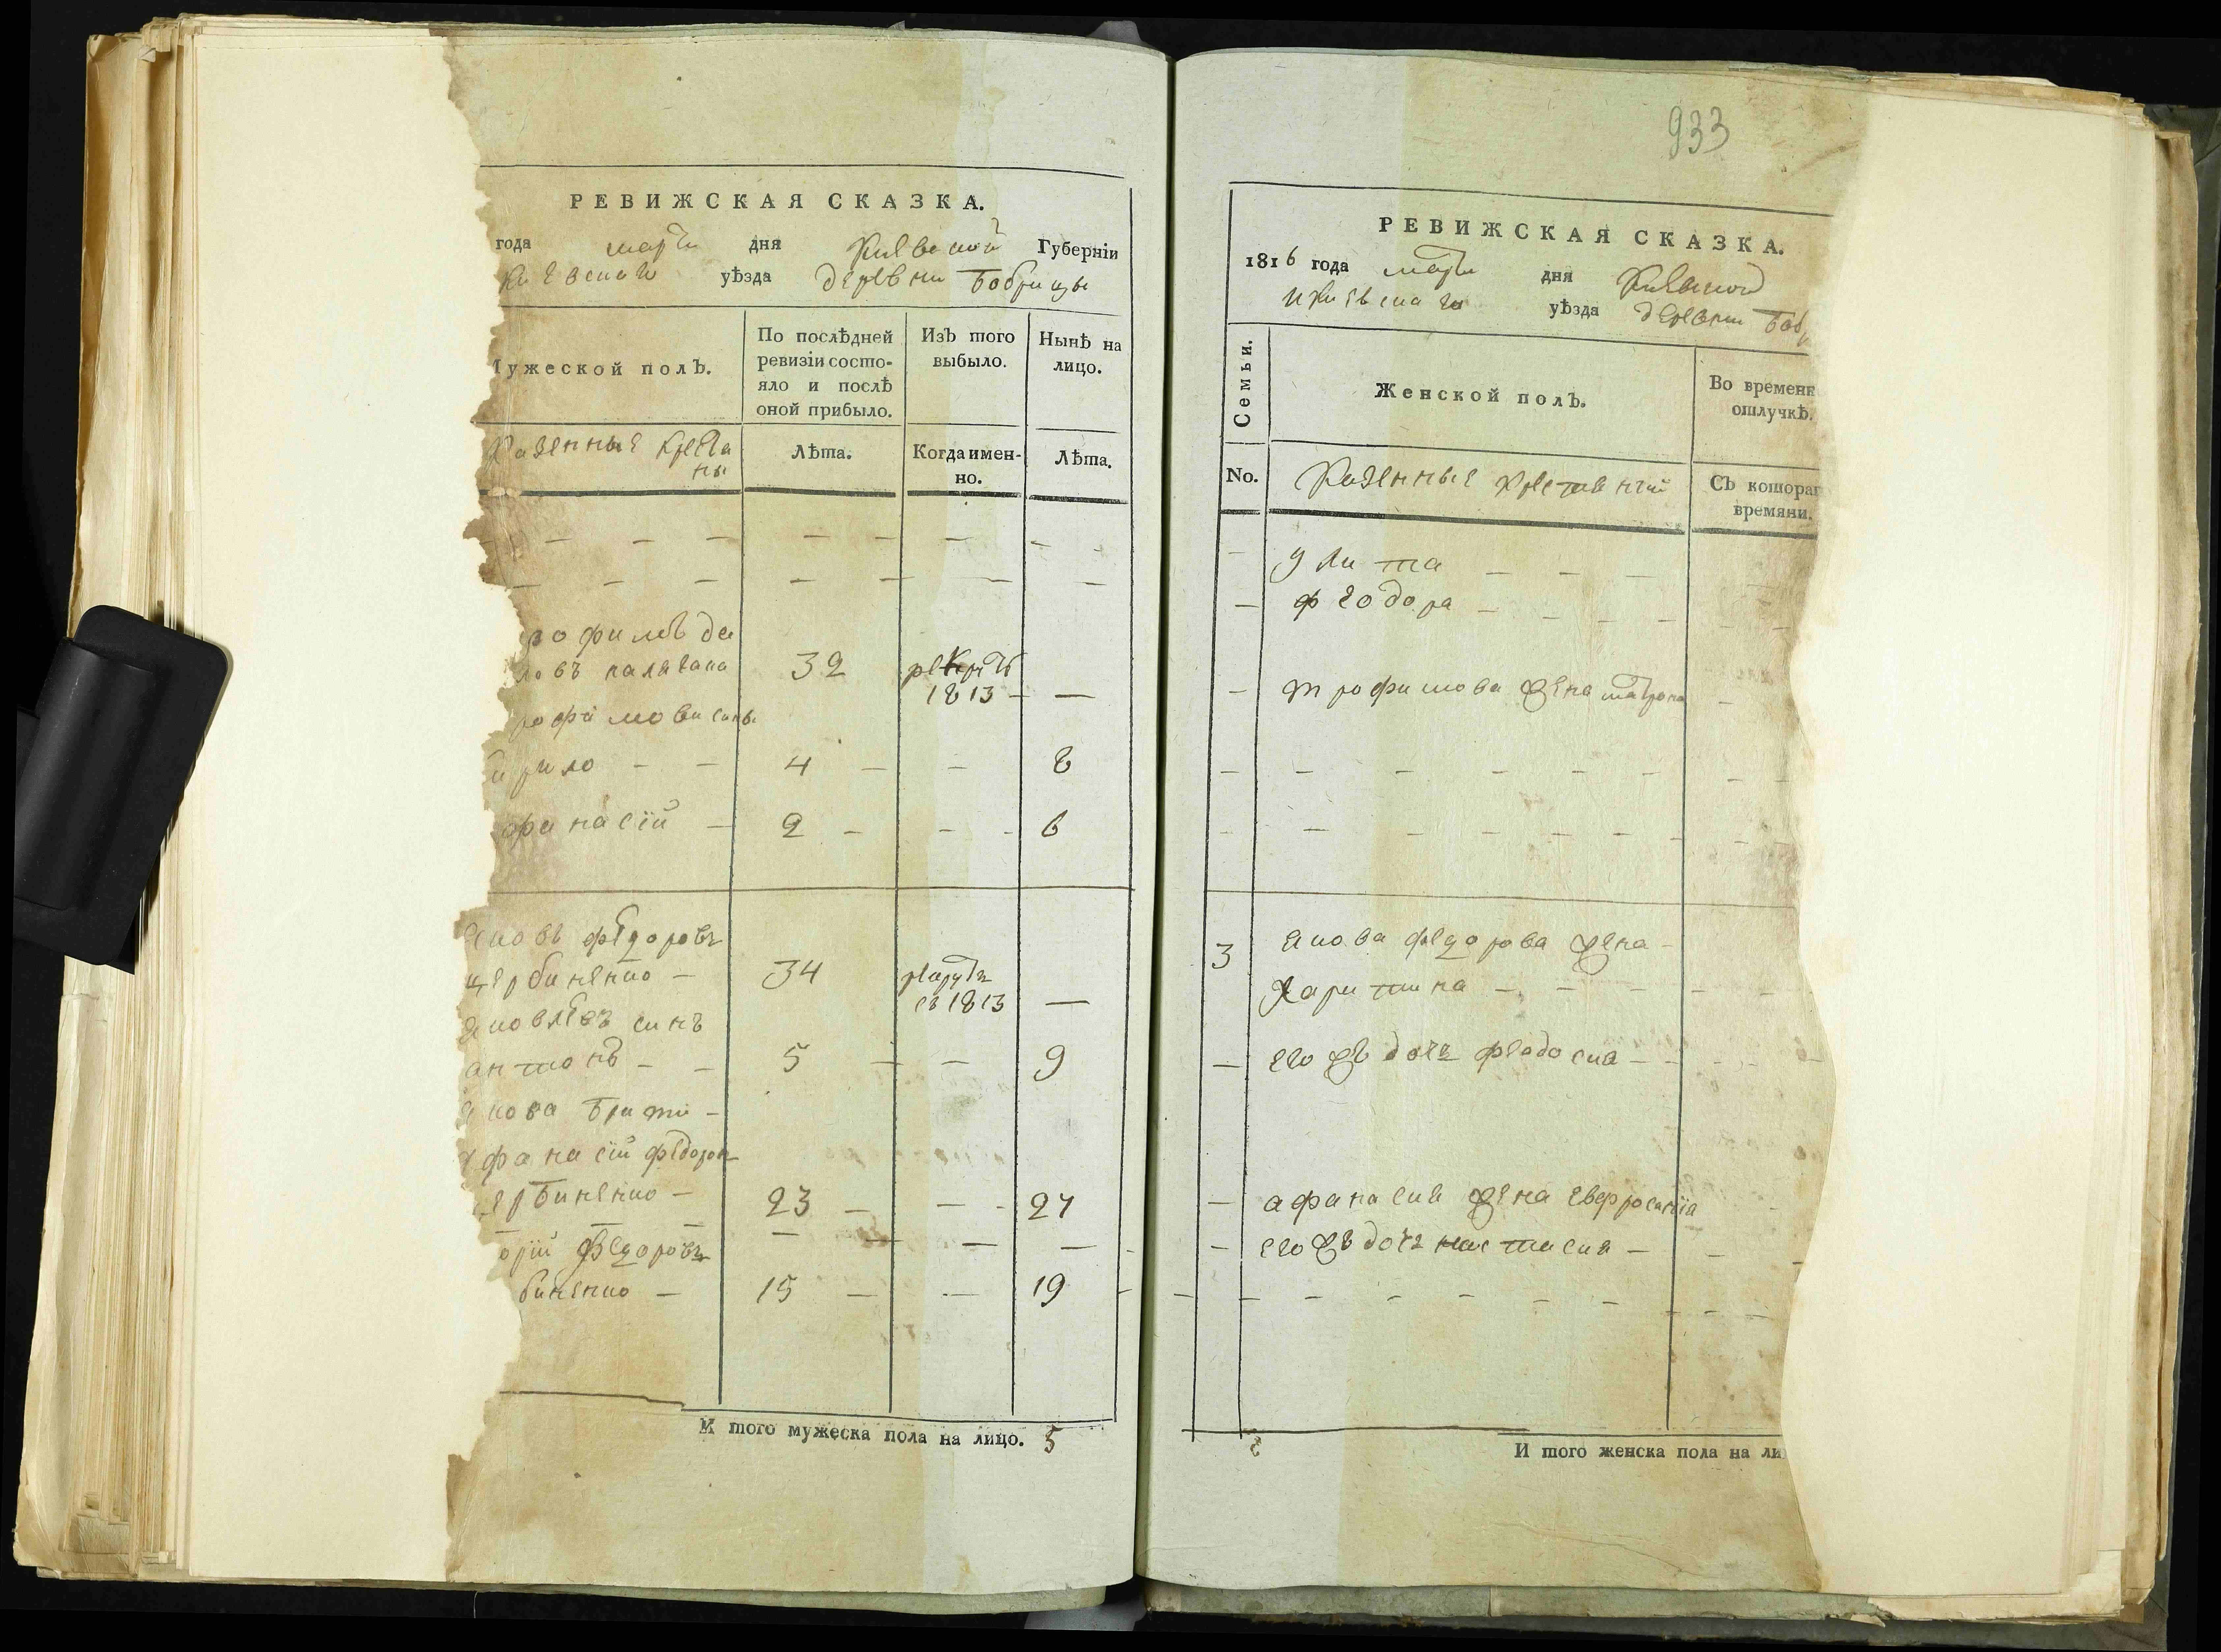 РЕВИЖСКАЯ СКАЗКА.
года марта дня Киевской Губерніи
Киевскаго уѣзда деревни Бобрицы
Мужеской полъ.
По послѣдней ревизіи состо-
яло и послѣ
оной прибыло.
Изъ того
выбыло.
Нынѣ на
лицо.
Казенные креста
ны
Лѣта.
Когда имен-
но.
Лѣта.
рофимъ да
ловъ
32
рекрутъ
1813 —
—
рофимова сины
ирило — — 4 — — 8
фанасій — 2 — — 6
Яковъ федоровъ
щербиненко — 34
рекрутъ
въ 1813 —
Яковлевъ синъ
антонъ — — 5 — — 9
Якова брати —
Афанасій федоров
ербиненко — 23 — — 27
орій Федоровъ
биненко — 15 — — 19
И того мужеска пола на лицо. 5
933
РЕВИЖСКАЯ СКАЗКА.
1816 года марта дня Киевской
Киевскаго уѣзда деревни Боб
Семьи.
Женской полъ.
Во временн
отлучкѣ.
No.
Казенные
Съ котораг
времяни.
— улита — — —
— феодора —
— трофимова жена матрона —
3 Якова федорова жена —
Харитина —
— его жъ дочь феодосия — —
— афанасия жена евфросинїа
— его жъ дочь настасия —
И того женска пола на ли